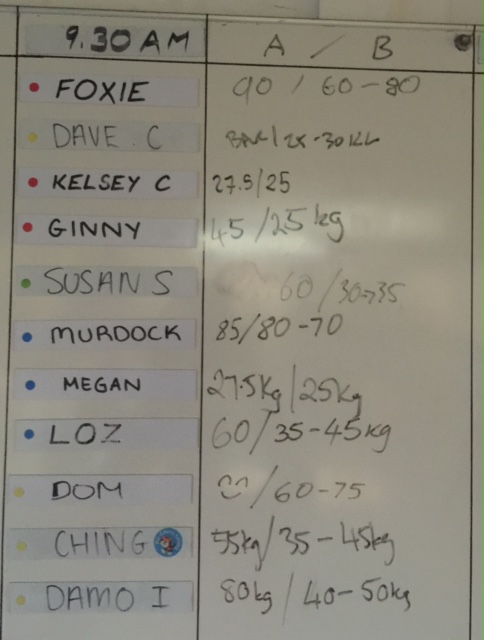 9.30 AM A / B
FOXIE 90 / 60-80
DAVE C BAR/2x-30KG
KELSEY C 27.5/25
GINNY 45/25kg
SUSAN S 60/30→35
MURDOCK 85/80-70
MEGAN 27.5kg/25kg
LOZ 60/35-45kg
DOM /60-75
CHING 55kg/35-45kg
DAMO I 80kg/40-50kg